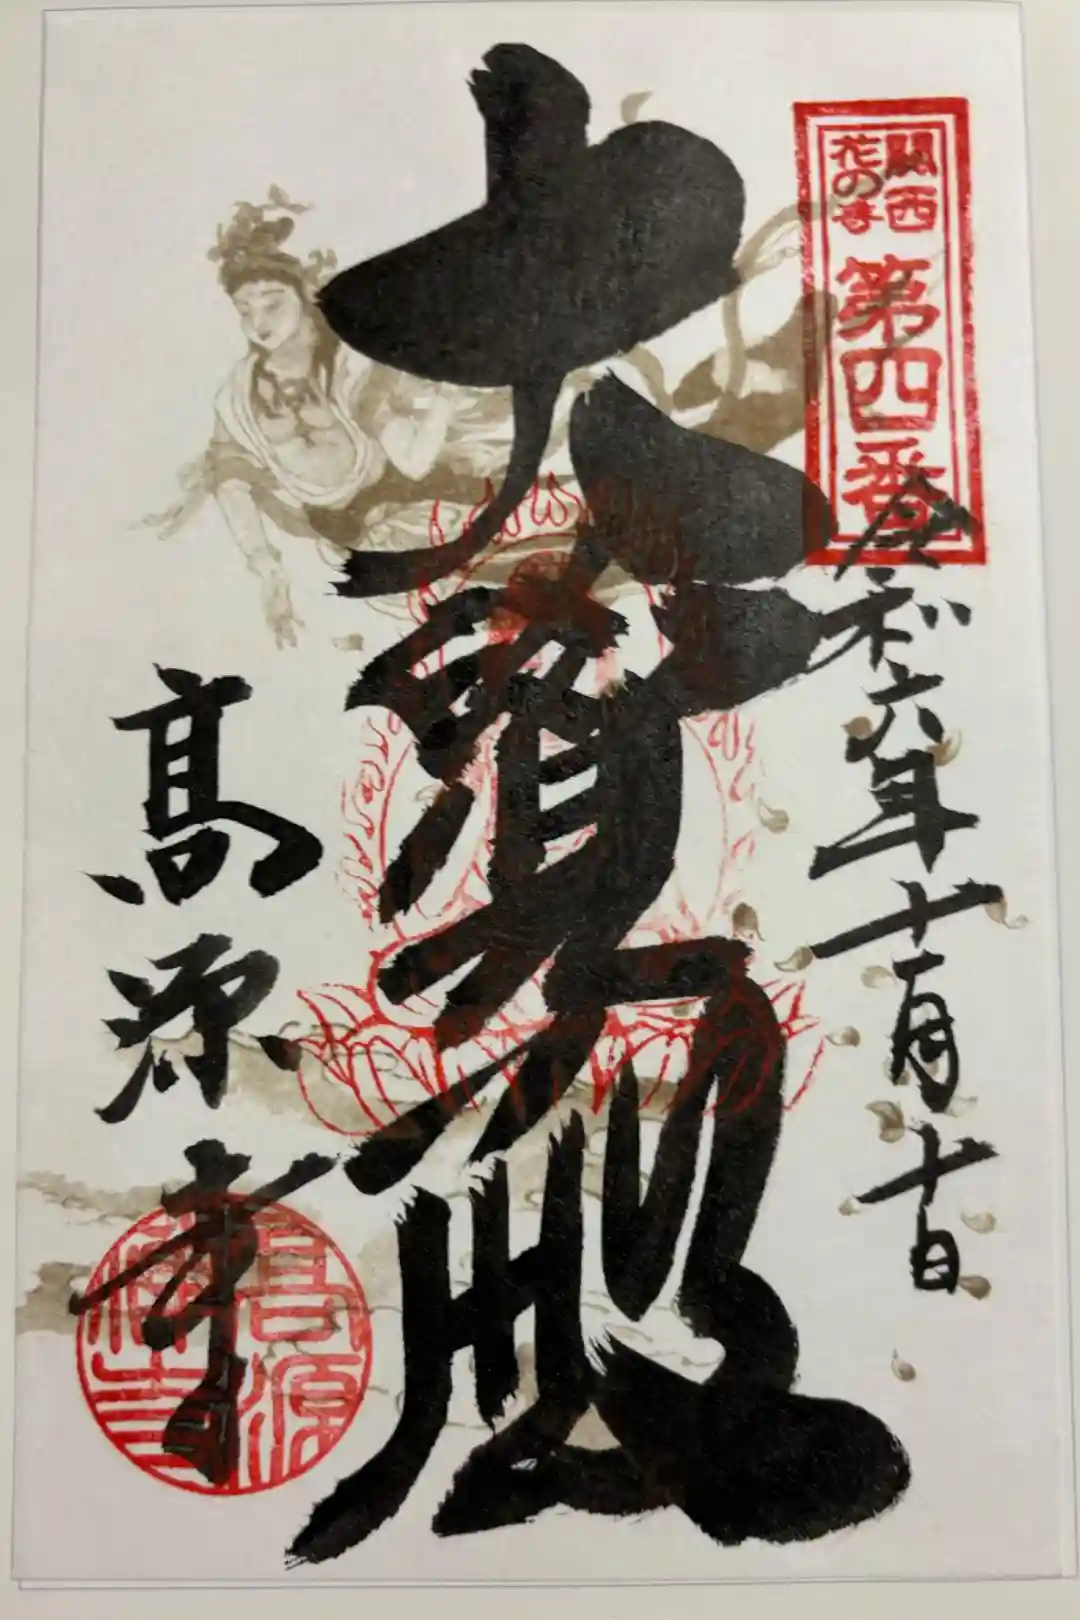 関西
花の寺
第四番
令和六年十一月十日
大寶殿
高源寺
高源禅寺